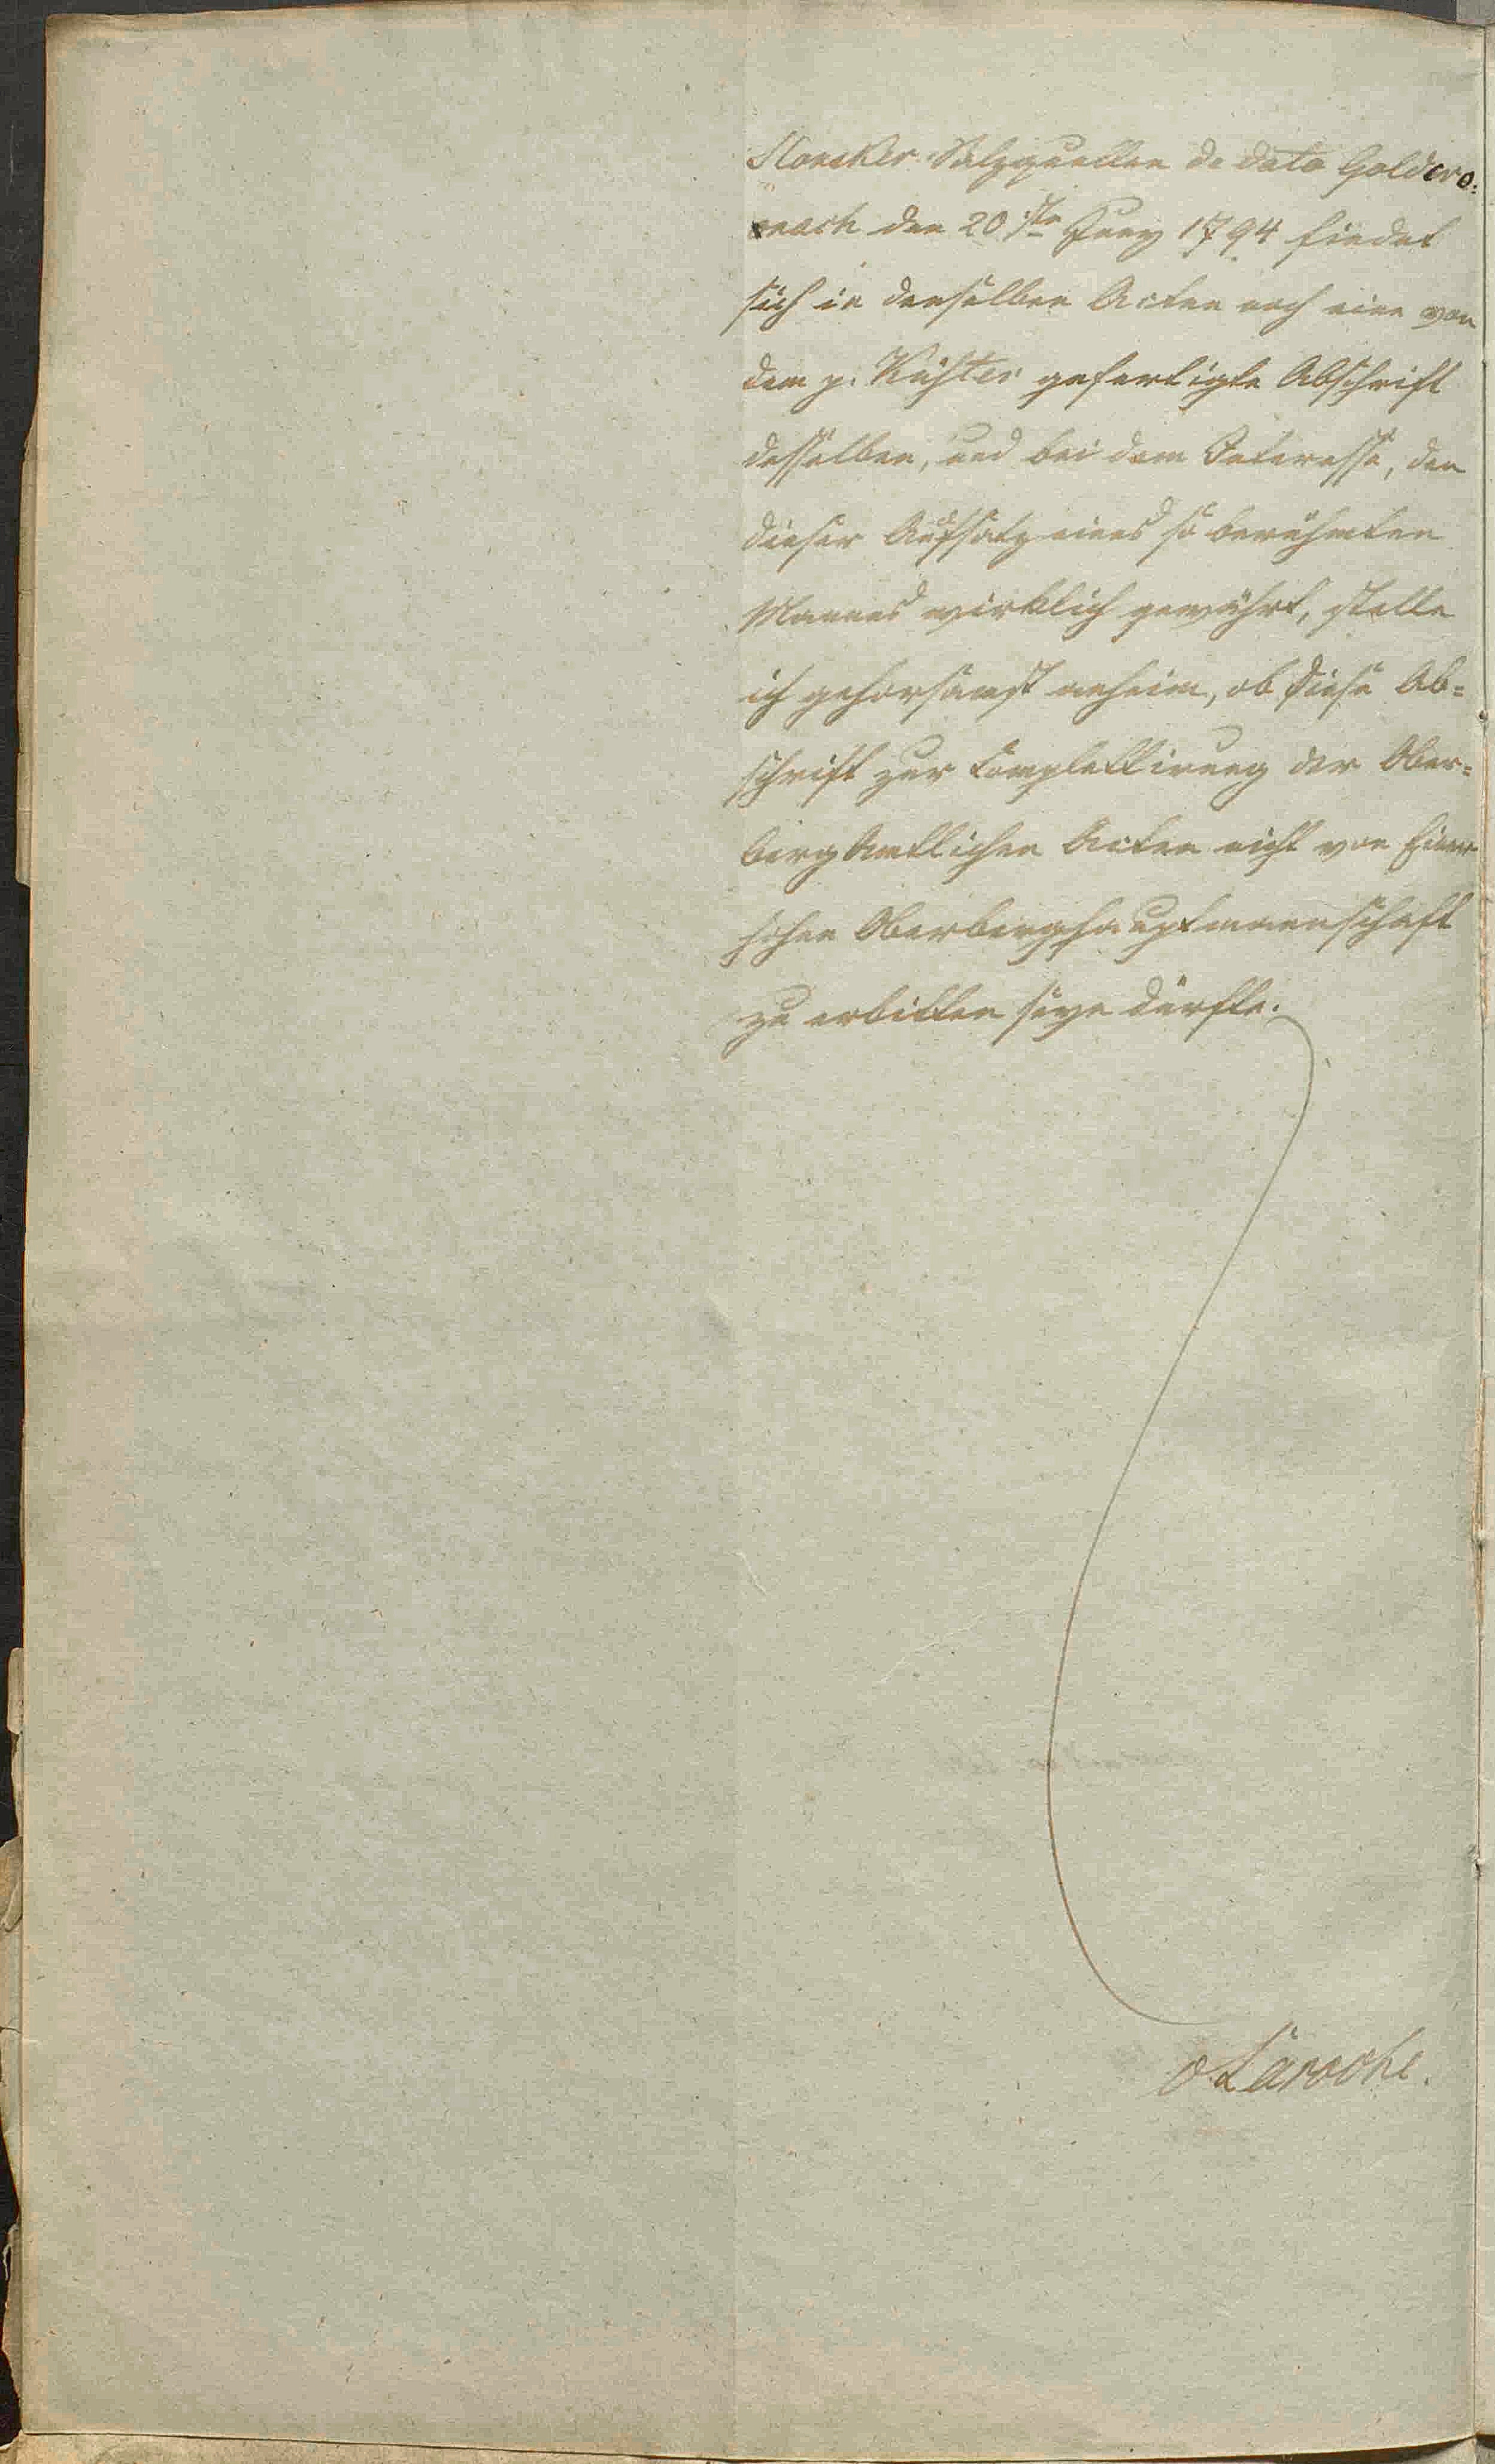 Slonsker Salzquellen de dato Goldcro:
nach den 20sten Juny 1794 findet
sich in denselben Acten noch eine von
dem p. Küster gefertigte Abschrift
desselben, und bei dem Interesse, den
dieser Aufsatz eines so berühmten
Mannes wirklich gewährt, stelle
ich gehorsamst anheim, ob diese Ab=
schrift zur Complettirung der Ober=
bergamtlichen Acten nicht von Einer
hohen Oberberghauptmannschaft
zu erbitten seyn dürfte.
Laroche.